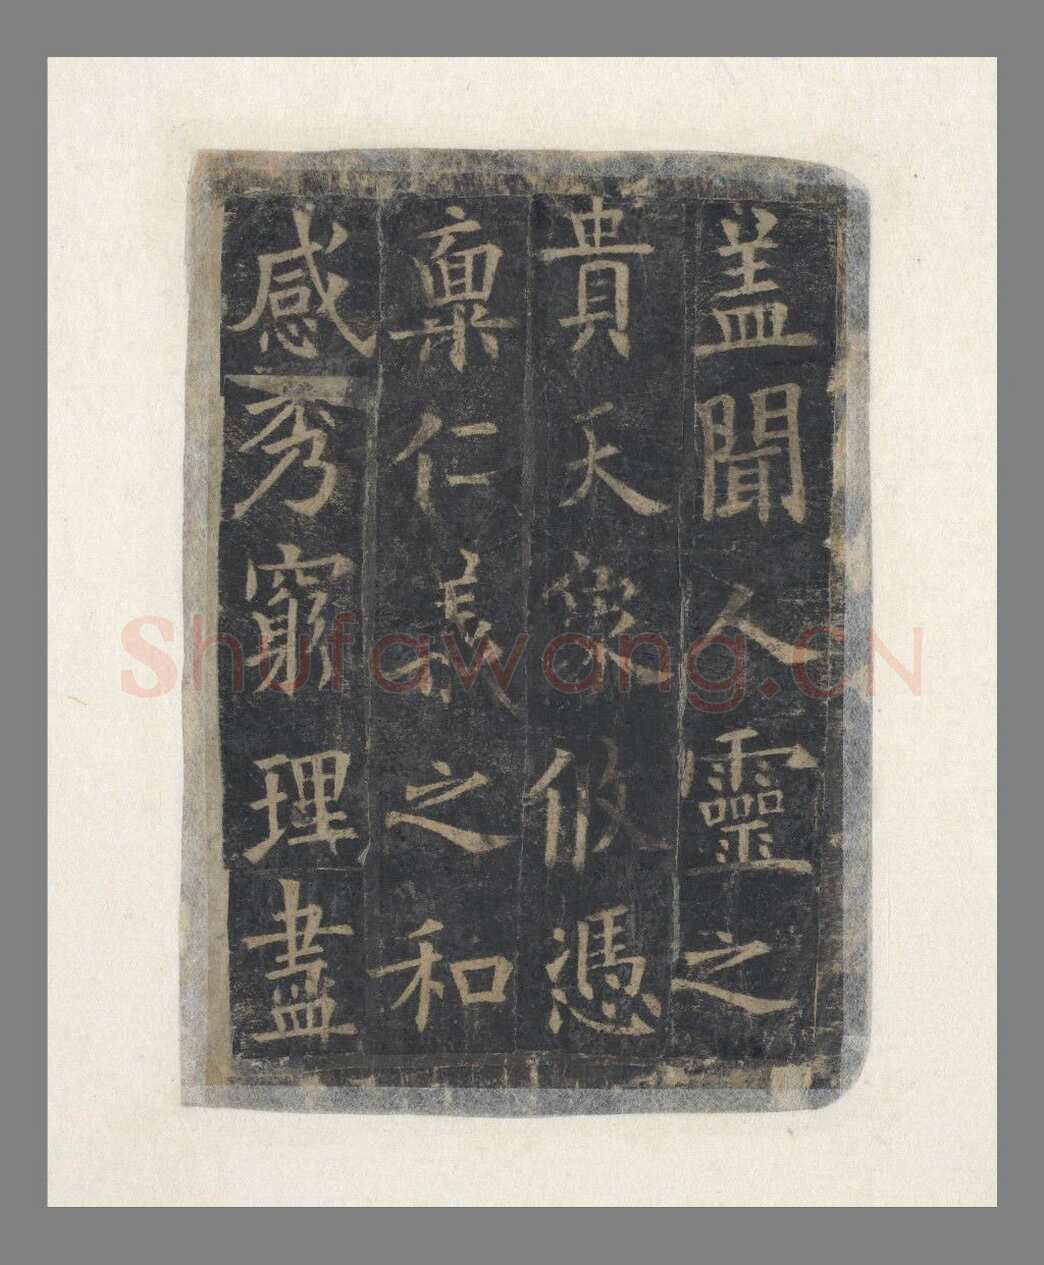 盖聞人靈之
貴天象攸憑
稟仁義之和
感秀窮理盡
Shufawang.CN